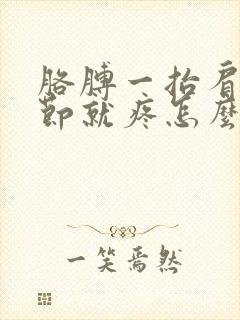 胳膊一抬肩
節就疼怎麼
一笑焉然